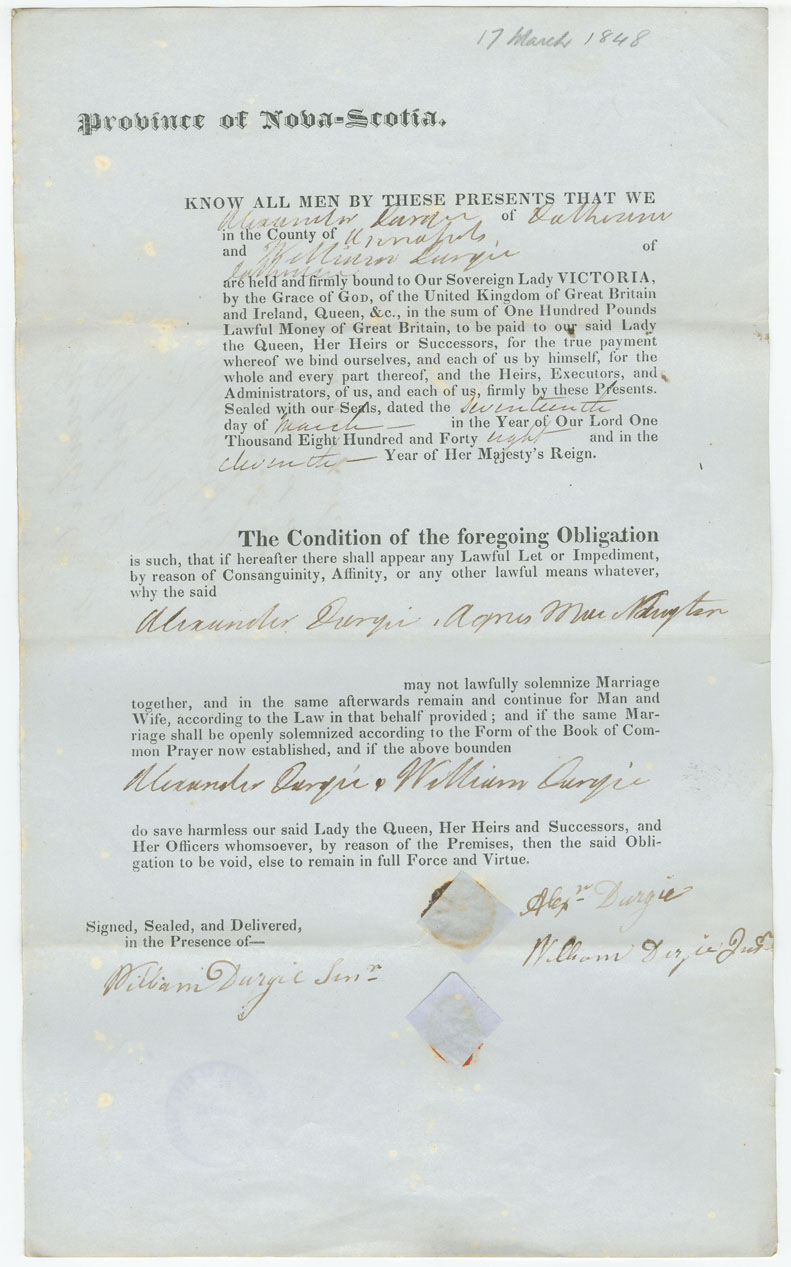 17 March 1848
Province of Nova-Scotia.
KNOW ALL MEN BY THESE PRESENTS THAT WE
Alexander Durgie of Dalhousie
in the County of Annapolis,
and William Durgie of
Dalhousie
are held and firmly bound to Our Sovereign Lady VICTORIA,
by the Grace of GOD, of the United Kingdom of Great Britain
and Ireland, Queen, &c., in the sum of One Hundred Pounds
Lawful Money of Great Britain, to be paid to our said Lady
the Queen, Her Heirs or Successors, for the true payment
whereof we bind ourselves, and each of us by himself, for the
whole and every part thereof, and the Heirs, Executors, and
Administrators, of us, and each of us, firmly by these Presents.
Sealed with our Seals, dated the Seventeenth
day of March — in the Year of Our Lord One
Thousand Eight Hundred and Forty eight and in the
eleventh — Year of Her Majesty's Reign.
The Condition of the foregoing Obligation
is such, that if hereafter there shall appear any Lawful Let or Impediment,
by reason of Consanguinity, Affinity, or any other lawful means whatever,
why the said
Alexander Durgie , Agnes Mac
may not lawfully solemnize Marriage
together, and in the same afterwards remain and continue for Man and
Wife, according to the Law in that behalf provided ; and if the same Mar-
riage shall be openly solemnized according to the Form of the Book of Com-
mon Prayer now established, and if the above bounden
Alexander Durgie & William Durgie
do save harmless our said Lady the Queen, Her Heirs and Successors, and
Her Officers whomsoever, by reason of the Premises, then the said Obli-
gation to be void, else to remain in full Force and Virtue.
Alexr Durgie
Signed, Sealed, and Delivered,
in the Presence of—
William Durgie Junr
William Durgie Senr